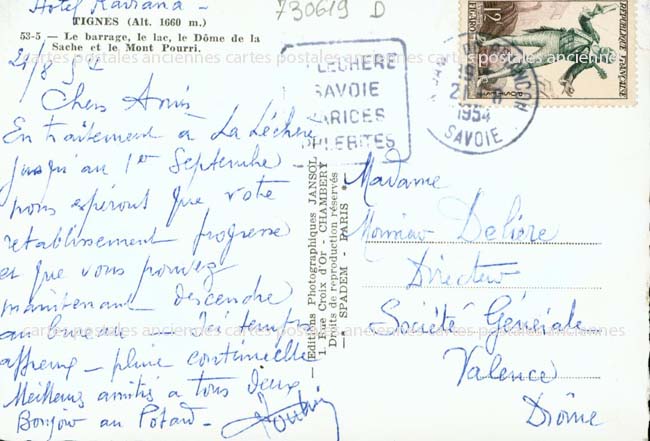 Hotel Radiana
730619 D
TIGNES (Alt. 1660 m.)
53-5 — Le barrage, le lac, le Dôme de la
Sache et le Mont Pourri.
21/8 54
Chers Amis
En traitement à La Léchère
jusqu'au 1er Septembre
nous espérons que votre
rétablissement progresse
et que vous pouvez
maintenant descendre
au bureau Ici temps
affreux - pluie continuelle
Meilleures amitiés à tous deux
Bonjour au Potard
LÉCHÈRE
SAVOIE
VARICES
PHLEBITES
21-8
1954
SAVOIE
12F
REPUBLIQUE FRANÇAISE
Editions Photographiques JANSOL
1, Rue Croix d'Or - CHAMBERY
Droits de reproduction réservés
SPADEM - PARIS
Madame
Monsieur Delière
Directeur
Société Générale
Valence
Drôme
cartes postales anciennes cartes postales anciennes cartes postales anciennes